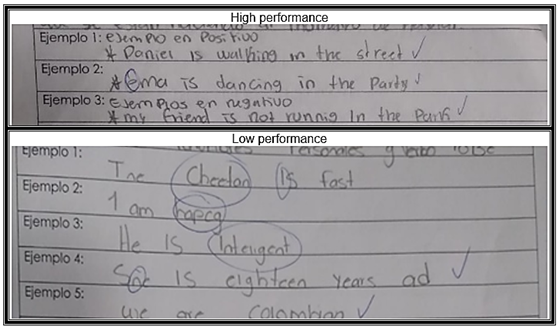 High performance
Ejemplo 1: ejemplo en Positivo
* Daniel is walking in the street ✓
Ejemplo 2:
* Ema is dancing in the Party ✓
Ejemplo 3: Ejemplos en negativo
* my friend is not runnig In the Park ✓
Low performance
Ejemplo 1: Personales y verbo
The Cheetah Is fast
Ejemplo 2:
I am
Ejemplo 3:
He Is Inteligent
Ejemplo 4:
She Is eighteen years ✓
Ejemplo 5:
we are colombian ✓